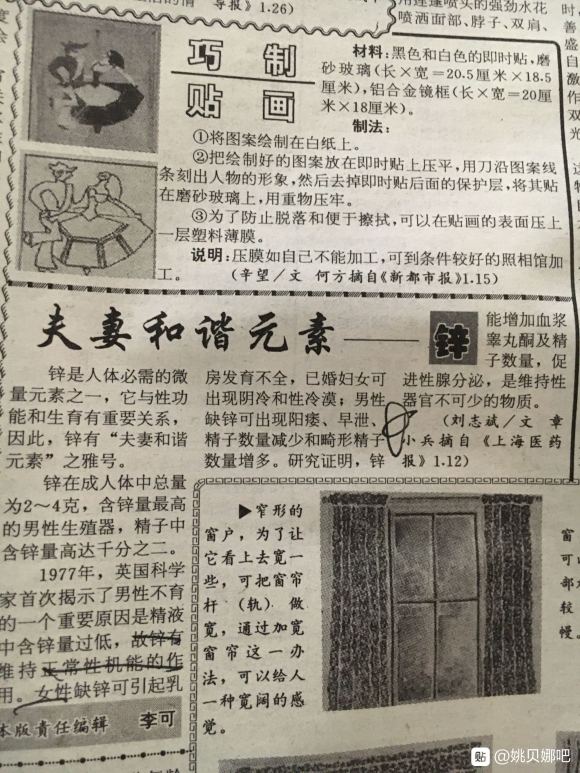 导报》1.26)
用连蓬喷头的强劲水花
喷洒面部、脖子、双肩、
巧制
贴画
材料:黑色和白色的即时贴,磨
砂玻璃(长×宽=20.5厘米×18.5
厘米),铝合金镜框(长×宽=20厘
米×18厘米)。
制法:
①将图案绘制在白纸上。
②把绘制好的图案放在即时贴上压平,用刀沿图案线
条刻出人物的形象,然后去掉即时贴后面的保护层,将其贴
在磨砂玻璃上,用重物压牢。
③为了防止脱落和便于擦拭,可以在贴画的表面压上
一层塑料薄膜。
说明:压膜如自己不能加工,可到条件较好的照相馆加
工。 (辛望/文 何方摘自《新都市报》1.15)
夫妻和谐元素——锌
锌是人体必需的微
量元素之一,它与性功
能和生育有重要关系,
因此,锌有“夫妻和谐
元素”之雅号。
锌在成人体中总量
为2~4克,含锌量最高
的男性生殖器,精子中
含锌量高达千分之二。
1977年,英国科学
家首次揭示了男性不育
的一个重要原因是精液
中含锌量过低,故锌有
维持正常性机能的作
用。女性缺锌可引起乳
房发育不全,已婚妇女可
出现阴冷和性冷漠;男性
缺锌可出现阳痿、早泄、
精子数量减少和畸形精子
数量增多。研究证明,锌
能增加血浆
睾丸酮及精
子数量,促
进性腺分泌,是维持性
器官不可少的物质。
(刘志斌/文 章
小兵摘自《上海医药
报》1.12)
本版责任编辑 李可
▶窄形的
窗户,为了让
它看上去宽一
些,可把窗帘
杆(轨)做
宽,通过加宽
窗帘这一办
法,可以给人
一种宽阔的感
觉。
贴 @姚贝娜吧